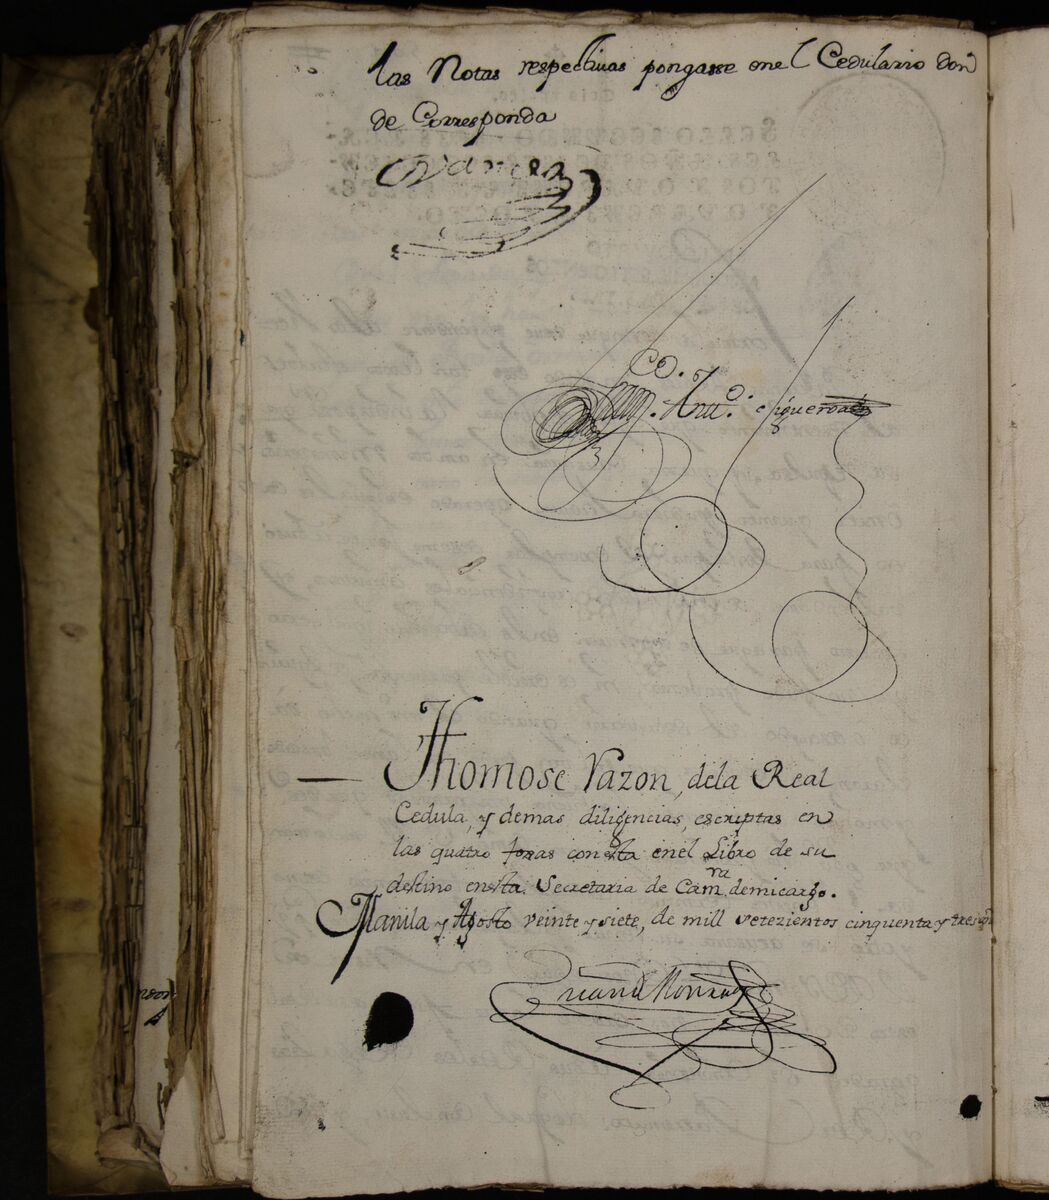 las Notas respectiuas pongasse enel Cedulario don
de Corresponda
D. Antto. Figueroa
Thomose razon, dela Real
Cedula, y demas diligencias, escriptas en
las quatro foxas con esta enel Libro de su
destino en esta Secretaria de Cam.ra demicargo.
Manila y Agosto veinte y siete, de mill setezientos cinquenta y tres